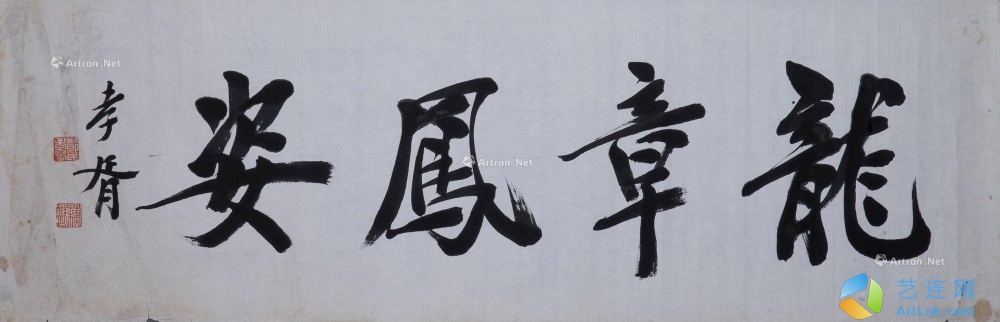 龍章鳳姿
孝胥
Artron.Net
Artron.Net
Artron.Net
艺连网
ArtLnk.com